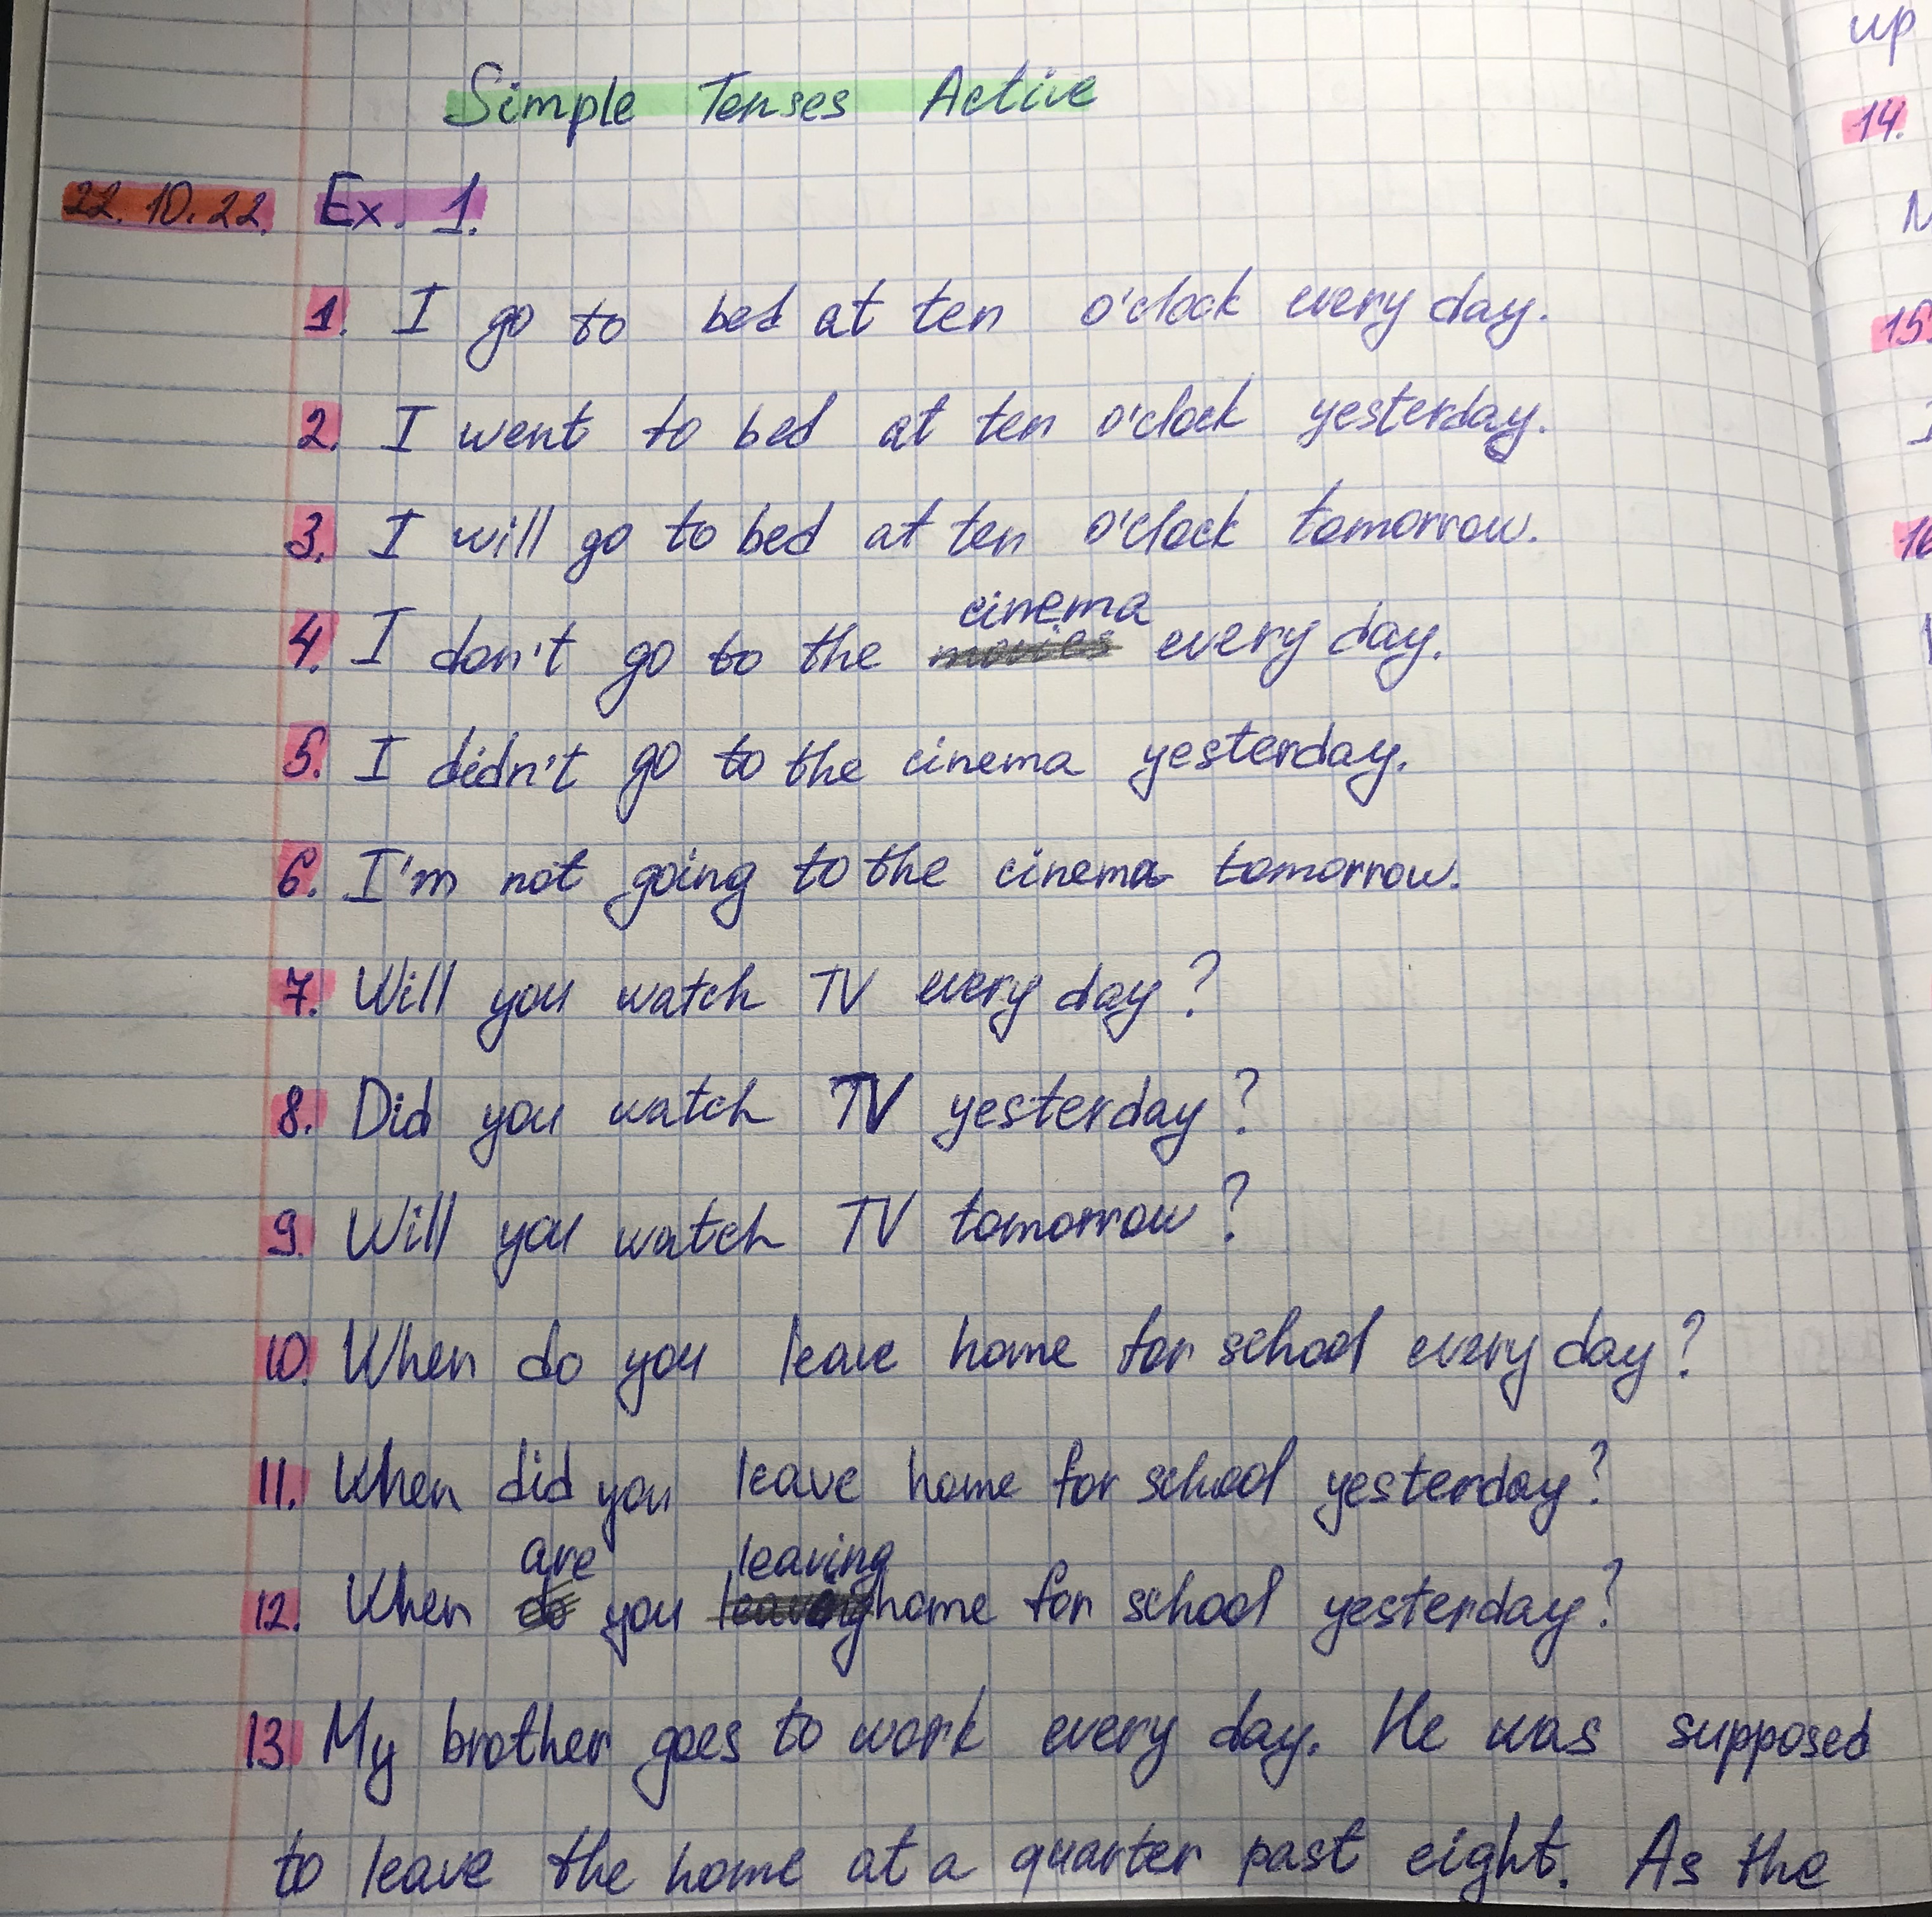 Simple Tenses Active
22.10.22. Ex. 1.
1. I go to bed at ten o'clock every day.
2. I went to bed at ten o'clock yesterday.
3. I will go to bed at ten o'clock tomorrow.
cinema
4. I don't go to the movies every day.
5. I didn't go to the cinema yesterday.
6. I'm not going to the cinema tomorrow.
7. Will you watch TV every day?
8. Did you watch TV yesterday?
9. Will you watch TV tomorrow?
10. When do you leave home for school every day?
11. When did you leave home for school yesterday?
are leaving
12. When do you leaving home for school yesterday?
13. My brother goes to work every day. He was supposed
to leave the home at a quarter past eight. As the
up
14.
15.
16